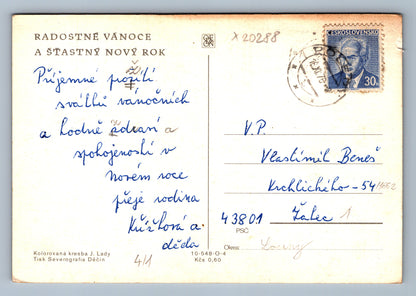 RADOSTNÉ VÁNOCE
A ŠŤASTNÝ NOVÝ ROK
x 20288
ČESKOSLOVENSKO
30
Příjemné prožití
svátků vánočních
a hodně zdraví a
spokojenosti v
novém roce
přeje rodina
a
děda
V.P.
Vlastimil Beneš
Vrchlického - 54
43801 Žatec 1
PSČ
Okres
Louny
Kolorovaná kresba J. Lady
Tisk Severografia Děčín
4/1
10-548-O-4
Kčs 0,60